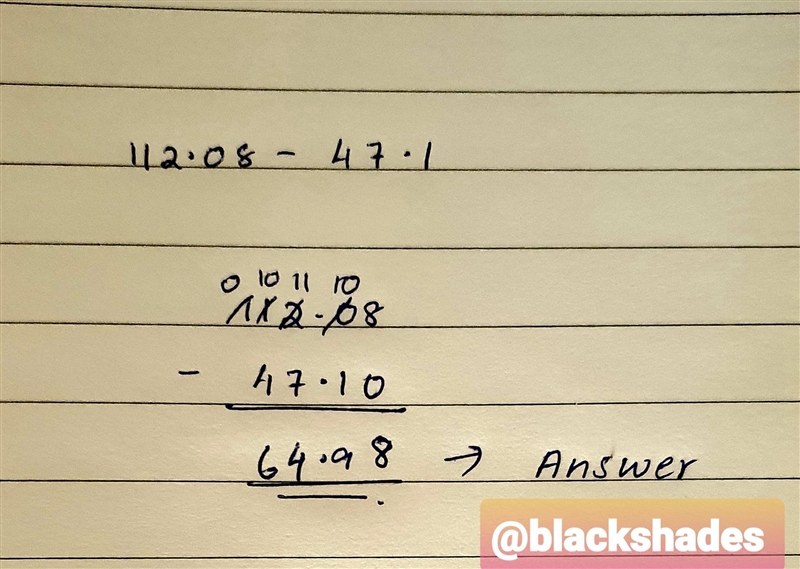 112.08 - 47.1
0 10 11 10
112.08
- 47.10
64.98 → Answer
@blackshades